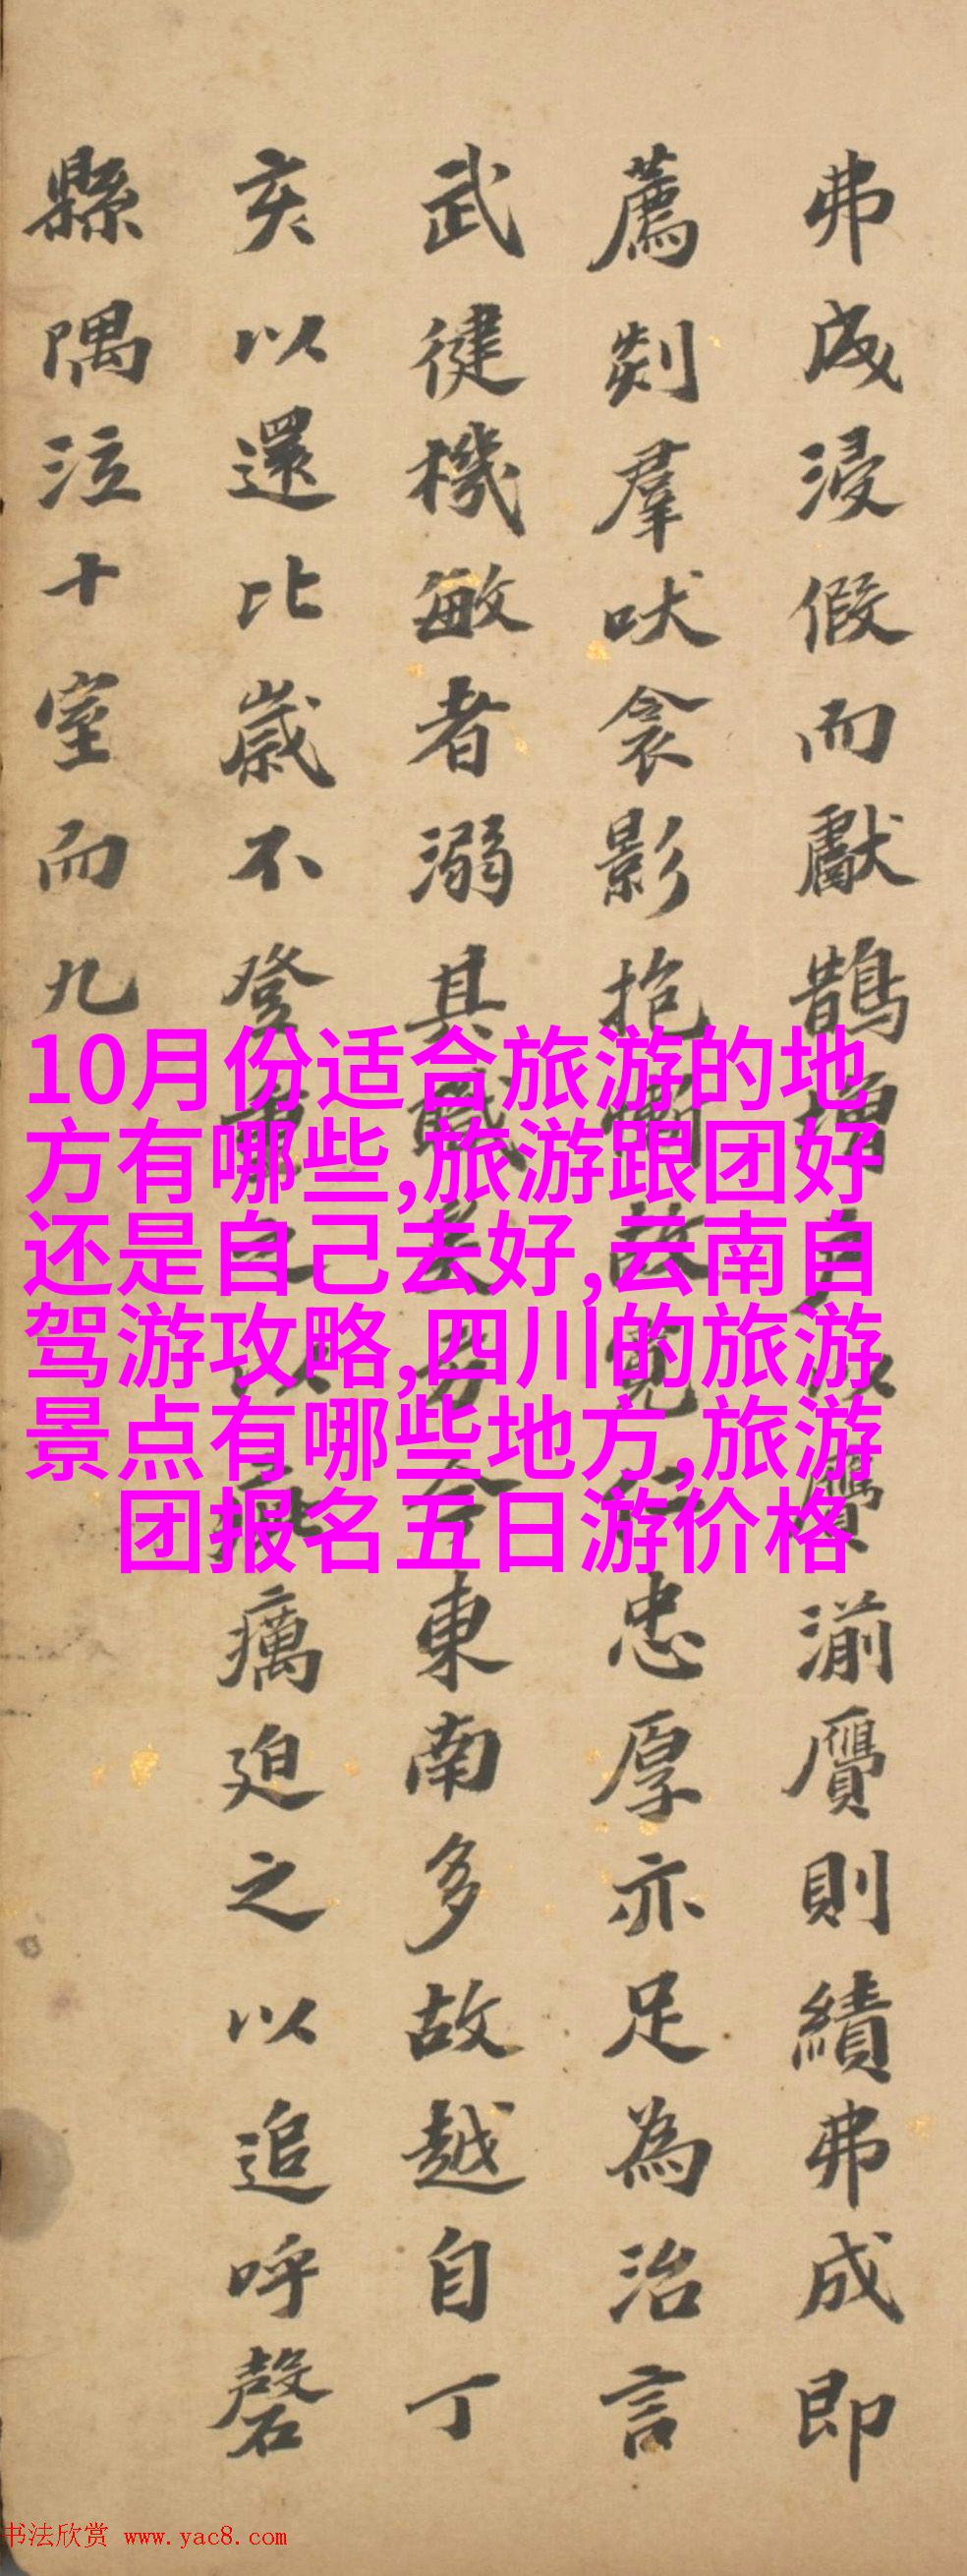 弗成浸假而獻鵲增戶以贗湔贗則績弗成即
薦剡羣吠衾影抱慚故寬仁忠厚亦足為治言
武徤機敏者溺其職矣方今東南多故越自丁
亥以還比歲不登重之以癘迫之以追呼磬
縣隅泣十室而九
10月份适合旅游的地
方有哪些,旅游跟团好
还是自己去好,云南自
驾游攻略,四川的旅游
景点有哪些地方,旅游
团报名五日游价格
书法欣赏 www.yac8.com